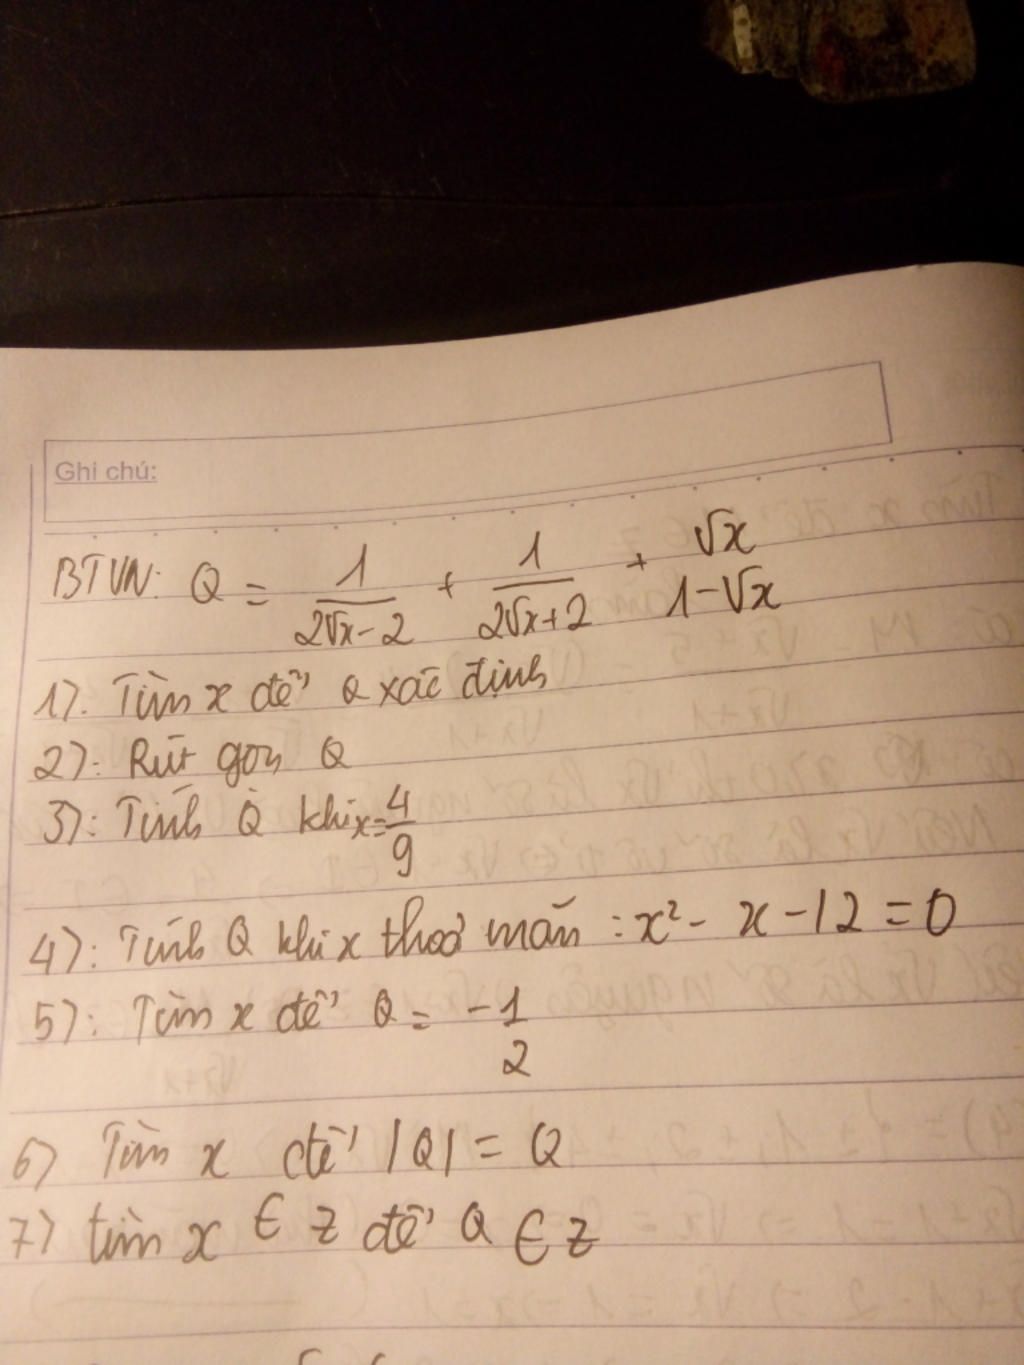 Ghi chú:
BTVN: Q = 1/(2√x-2) + 1/(2√x+2) + √x/(1-√x)
1). Tìm x để Q xác định
2): Rút gọn Q
3): Tính Q khi x = 4/9
4): Tính Q khi x thoả mãn : x² - x - 12 = 0
5): Tìm x để Q = -1/2
6) Tìm x để |Q| = Q
7) tìm x ∈ Z để Q ∈ Z